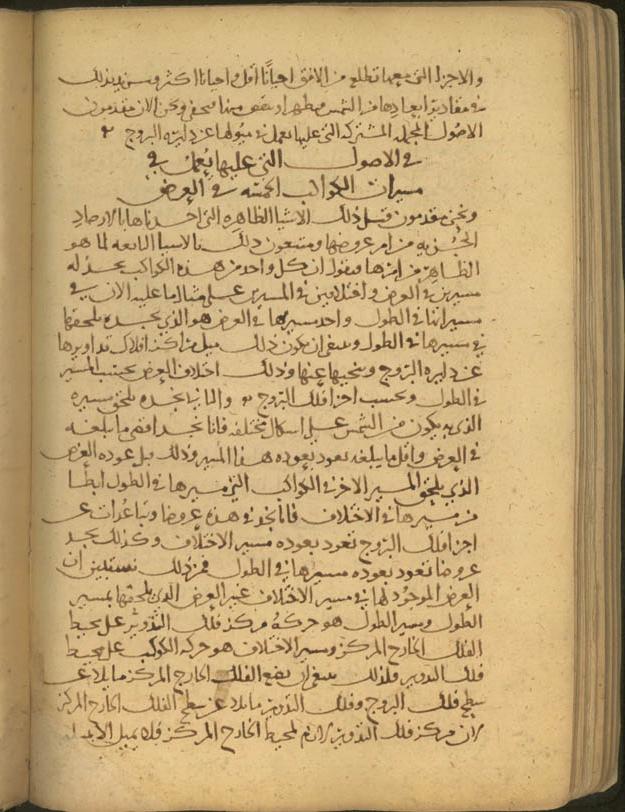 والاجزا التى معها تطلع من الافق احيانا اقل واحيانا اكثر وسن بذلك
مقادير ابعادها من الشمس ونحن الان مقدمون
الاصول المجمله المشتركه التى عليها يعمل فى ميولها عن دايرة البروج
فى الاصول التى عليها يعمل فى
مسيرات الكواكب الخمسه فى العرض
ونحن مقدمون قبل ذلك الاشيا الظاهره التى اخذناها بالارصاد
الجزيه من امر عروضها ومتبعون ذلك بالاشيا التابعه لما هو
الظاهر من امرها فنقول ان كل واحد من هذه الكواكب يحد له
مسيرين فى العرض واختلافين فى المسيرين على مثال ما عليه الان فى
مسيراتها فى الطول واحد مسيرها فى العرض هو الذى يحده يلحقها
فى مسيرها فى الطول وينبغى ان يكون ذلك ميل مراكز افلاك تداويرها
عن دايره البروج وتنحيها عنها وذلك اختلاف العرض بحسب المسير
فى الطول وبحسب اجزا فلك البروج والثانى يحده يلحق مسيره
الذى به يكون من الشمس على اشكال مختلفه فانا نجد اقصى ما يبلغه
فى العرض واقل ما يبلغه يعود بعوده هذا المسير وذلك مثل عوده العرض
الذى يلحق المسير الاخر فى الكواكب التى مسيرها فى الطول ابطا
من مسيرها فى الاختلاف فانا نجد فى هذه عروضا وتباعدات عن
اجزا فلك البروج تعود بعوده مسير الاختلاف وكذلك نجد
عروضا تعود بعوده مسيرها فى الطول فمن ذلك نستبين ان
العرض الموجود لها فى مسير الاختلاف غير العرض الذى يلحقها بمسير
الطول ومسير الطول هو حركة مركز فلك التدوير على محيط
الفلك الخارج المركز ومسير الاختلاف هو حركه الكوكب على محيط
فلك التدوير فلذلك ينبغى ان نضع الفلك الخارج المركز مايلا عن
سطح فلك البروج وفلك التدوير مايلا عن سطح الفلك الخارج المركز
لان مركز فلك التدوير لازم لمحيط الخارج المركز فلا يميل الا بميل